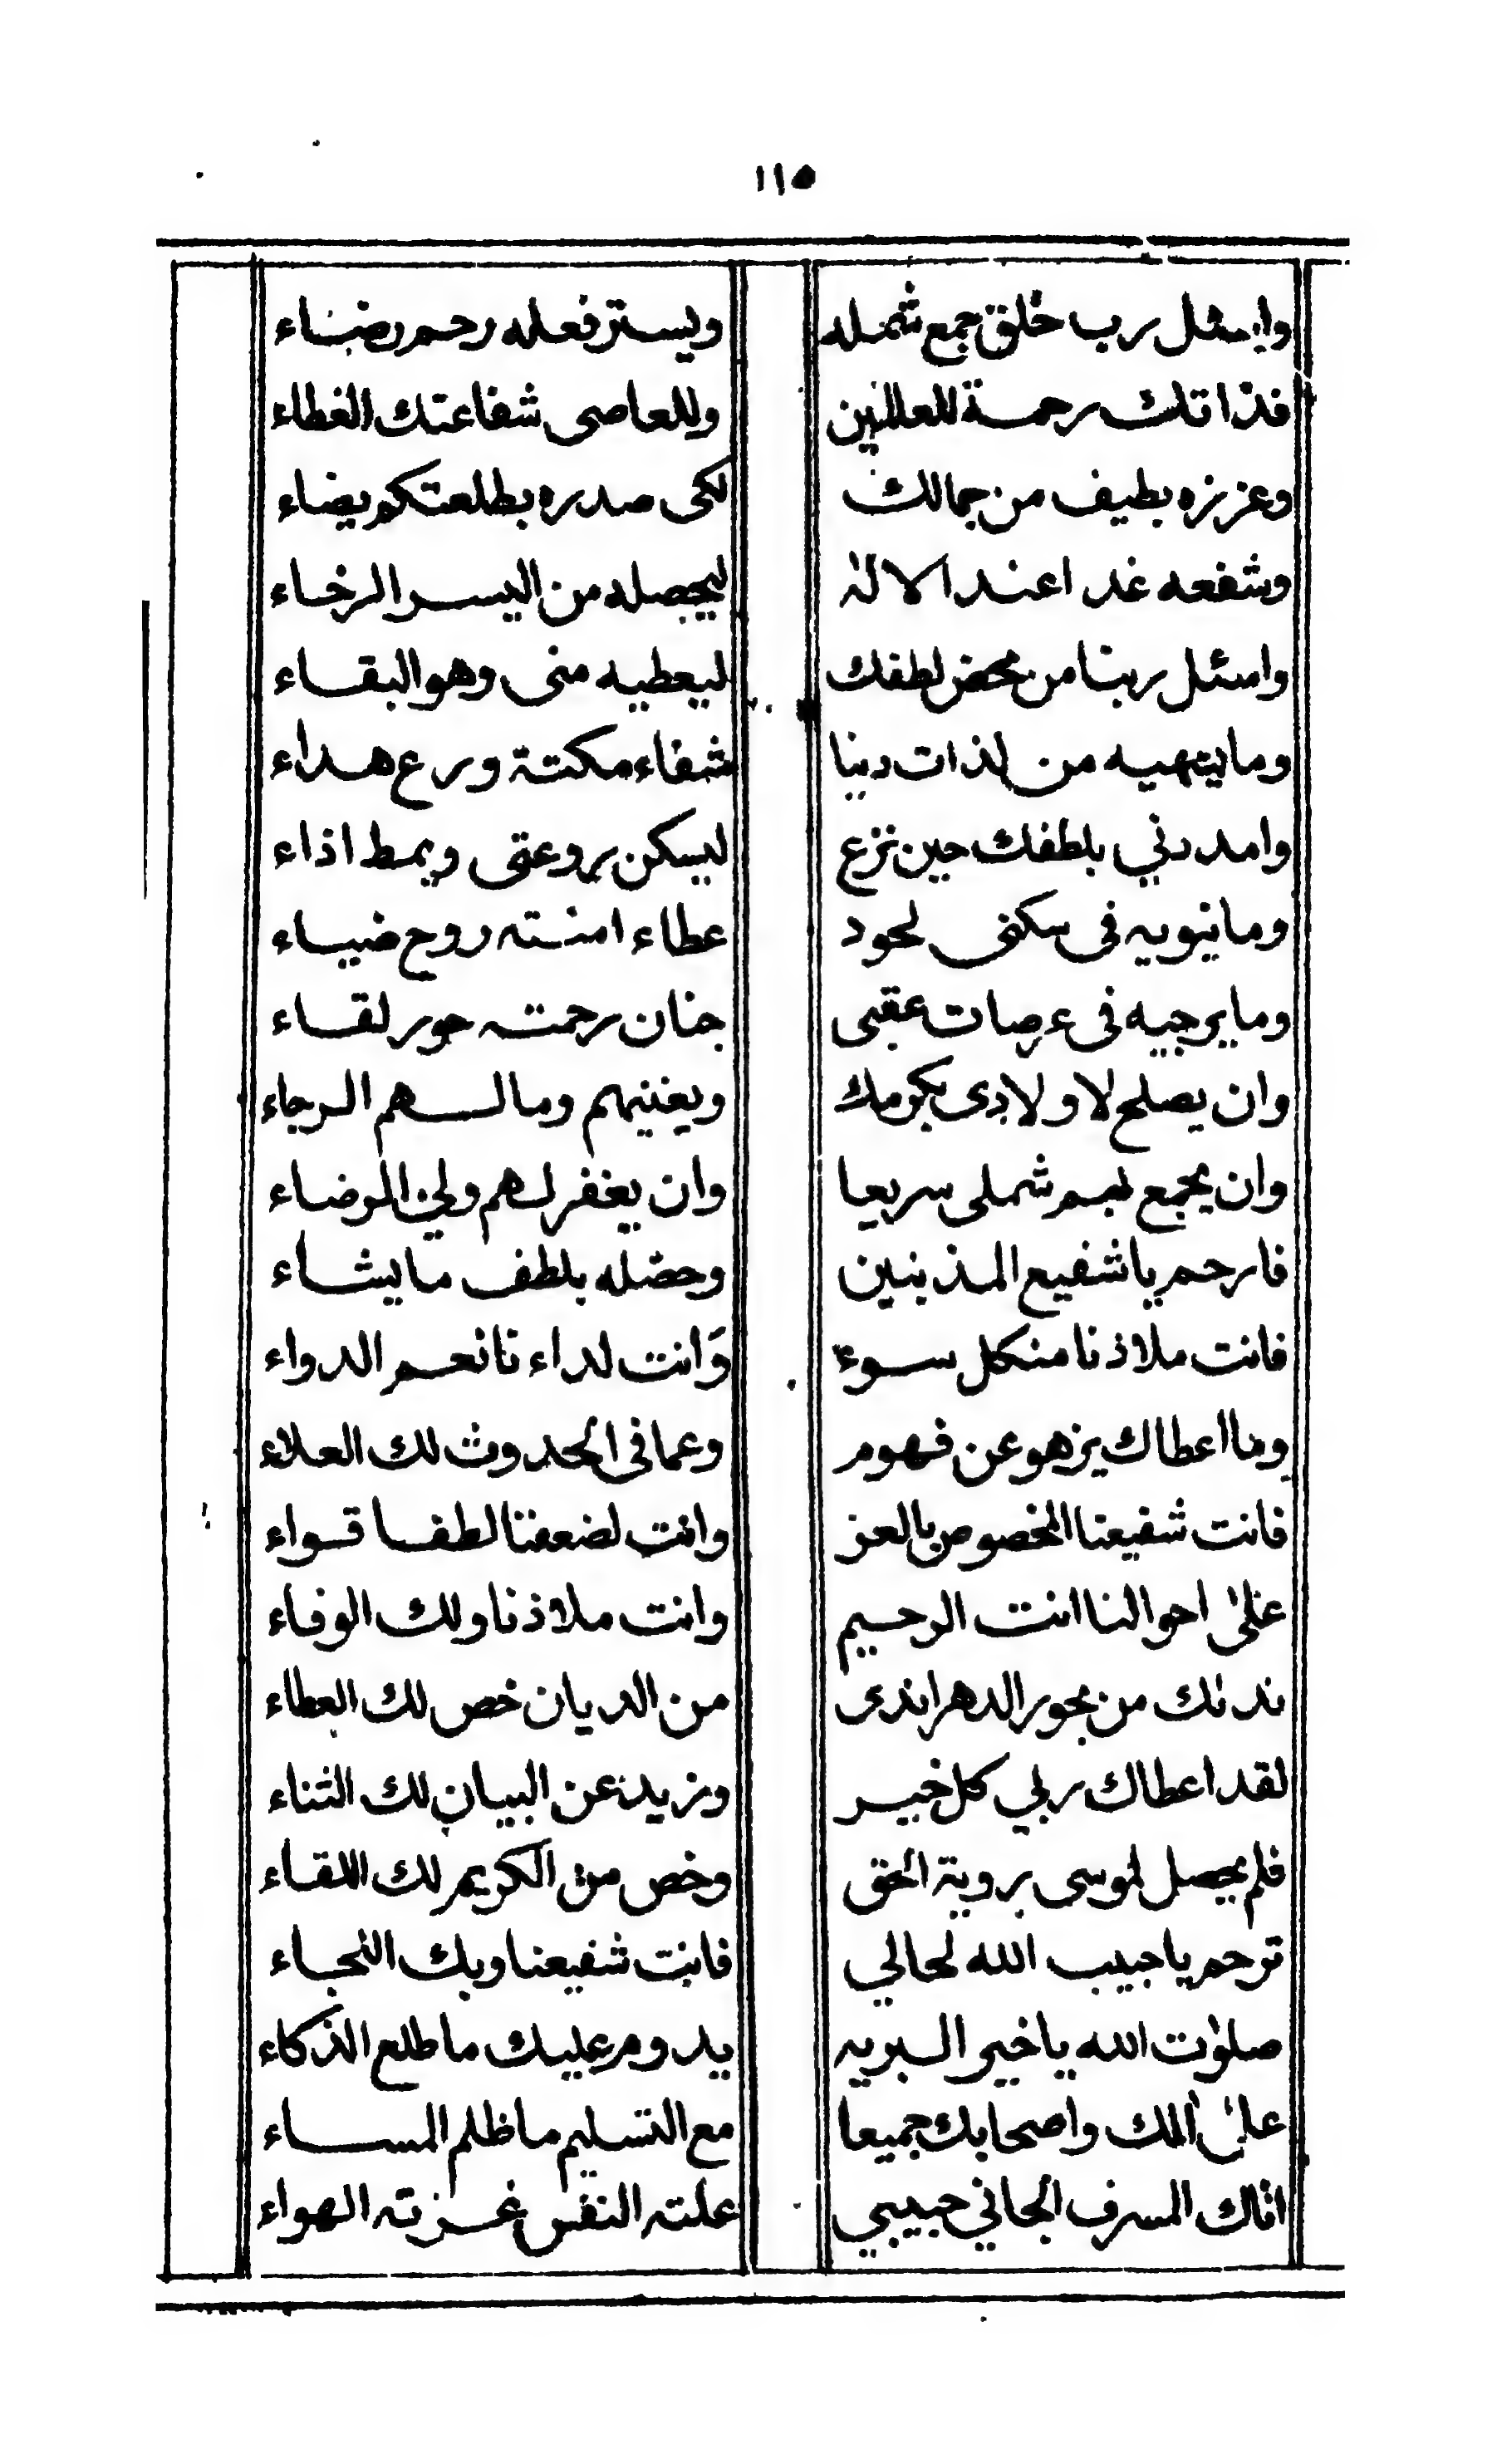 ١١٥
واسئل رب خلق جمع شمله ويستر فعله رحم رضاء
فذاتك رحمة للعالمين وللعاصى شفاعتك الغطاء
وعززه بطيف من جمالك لكى صدره بطلعتكم يضاء
وشفعه غدا عند الاله ليحصله من اليسر الرخاء
واسئل ربنا من محض لطفك ليعطيه منى وهو البقاء
وما يتهيه من لذات دينا شفاء مكنة ورع هداء
وامددني بلطفك حين نزع ليسكن روعتى ويمط اذاء
وما ينويه فى سكنى لحود عطاء امنته روح ضياء
وما يرجيه فى عرصات عقبى جنان رحمته حور لقاء
وان يصلح لاولادى بكرمك ويغنيهم ومالهم الرجاء
وان يجمع بهم شملى سريعا وان يغفر لهم ولي المرضاء
فارحم يا شفيع المذنبين وحصله بلطف ما يشاء
فانت ملاذنا منكل سوء وانت لداءنا نعم الدواء
وما اعطاك يزهو عن فهوم وعما فى الحدوث لك العلاء
فانت شفيعنا المخصوص بالعز وانت لضعفنا لطفا قواء
على احوالنا انت الرحيم وانت ملاذنا ولك الوفاء
نداك من بحور الدهر اندى من الديان خص لك العطاء
لقد اعطاك ربي كل خير ونزيد عن البيان لك الثناء
فلم يحصل لموسى روية الحق وخص من الكريم لك اللقاء
ترحم يا حبيب الله لحالي فانت شفيعنا وبك النجاء
صلوٰت الله يا خير البريه يدوم عليك ما طلع الذكاء
على الك واصحابك جميعا مع التسليم ما ظلم المساء
اتاك المسرف الجاني حبيبي علته النفس غرته الهواء